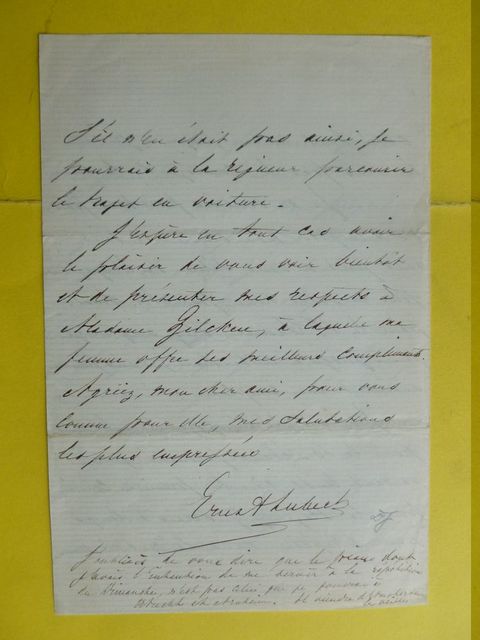 S'il n'en était pas ainsi, je
pourrais à la rigueur parcourir
le trajet en voiture.
J'espère en tout cas avoir
le plaisir de vous voir bientôt
et de présenter mes respects à
Madame Gilcken, à laquelle ma
femme offre ses meilleurs compliments.
Agréez, mon cher ami, pour vous
comme pour elle, mes salutations
les plus empressées
Ernst Lubeck
J'oubliais de vous dire que le piano dont
j'avais l'intention de me servir à la répétition
du Dimanche, n'est pas celui que je jouerai à
Utrecht et Arnhem. Il viendra d'Amsterdam